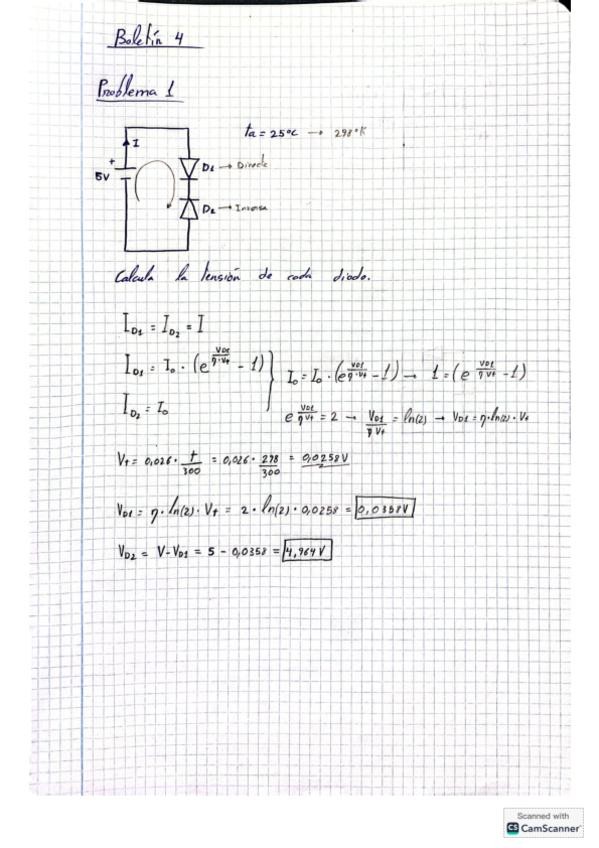 Boletín 4
Problema 1
ta = 25°C → 298°K
I
+
5V
D1 → Directa
D2 → Inversa
Calcula la tensión de cada diodo.
I_D1 = I_D2 = I
I_D1 = I_0 · (e^(V_D1/η·Vt) - 1)
I_D2 = I_0
I_0 = I_0 · (e^(V_D1/η·Vt) - 1) → 1 = (e^(V_D1/η Vt) - 1)
e^(V_D1/η Vt) = 2 → V_D1/η Vt = ln(2) → V_D1 = η·ln(2)·Vt
Vt = 0,026 · t/300 = 0,026 · 298/300 = 0,0258V
V_D1 = η · ln(2) · Vt = 2 · ln(2) · 0,0258 = 0,0358V
V_D2 = V - V_D1 = 5 - 0,0358 = 4,964V
Scanned with
CS CamScanner